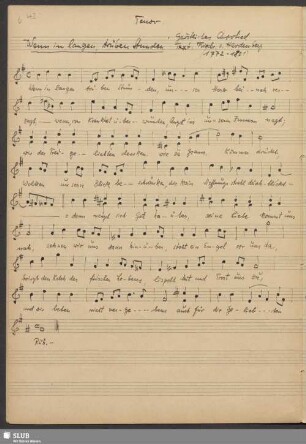 Tenor
Wenn in langen trüben Stunden
1772-181
Wenn in langen trüben Stunden, unser Herz beinah ver-
zagt, wenn von Krankheit über-wunden Angst in unserm Innern nagt,
wir der Treuge-liebten denken, wie sie Gram und Kummer drückt,
Wolken unsern Blick be-schränken, die kein Hoffnungsstrahl durch-blickt
o dann neigt sich Gott herüber, seine Liebe kommt uns
nah, sehnen wir uns dann hinüber steht ein Engel vor uns da,
bringt den Kelch des frischen Lebens, lispelt Mut und Trost uns zu,
und wir beten nicht vergebens auch für die Geliebten
Ruh.-
SLUB